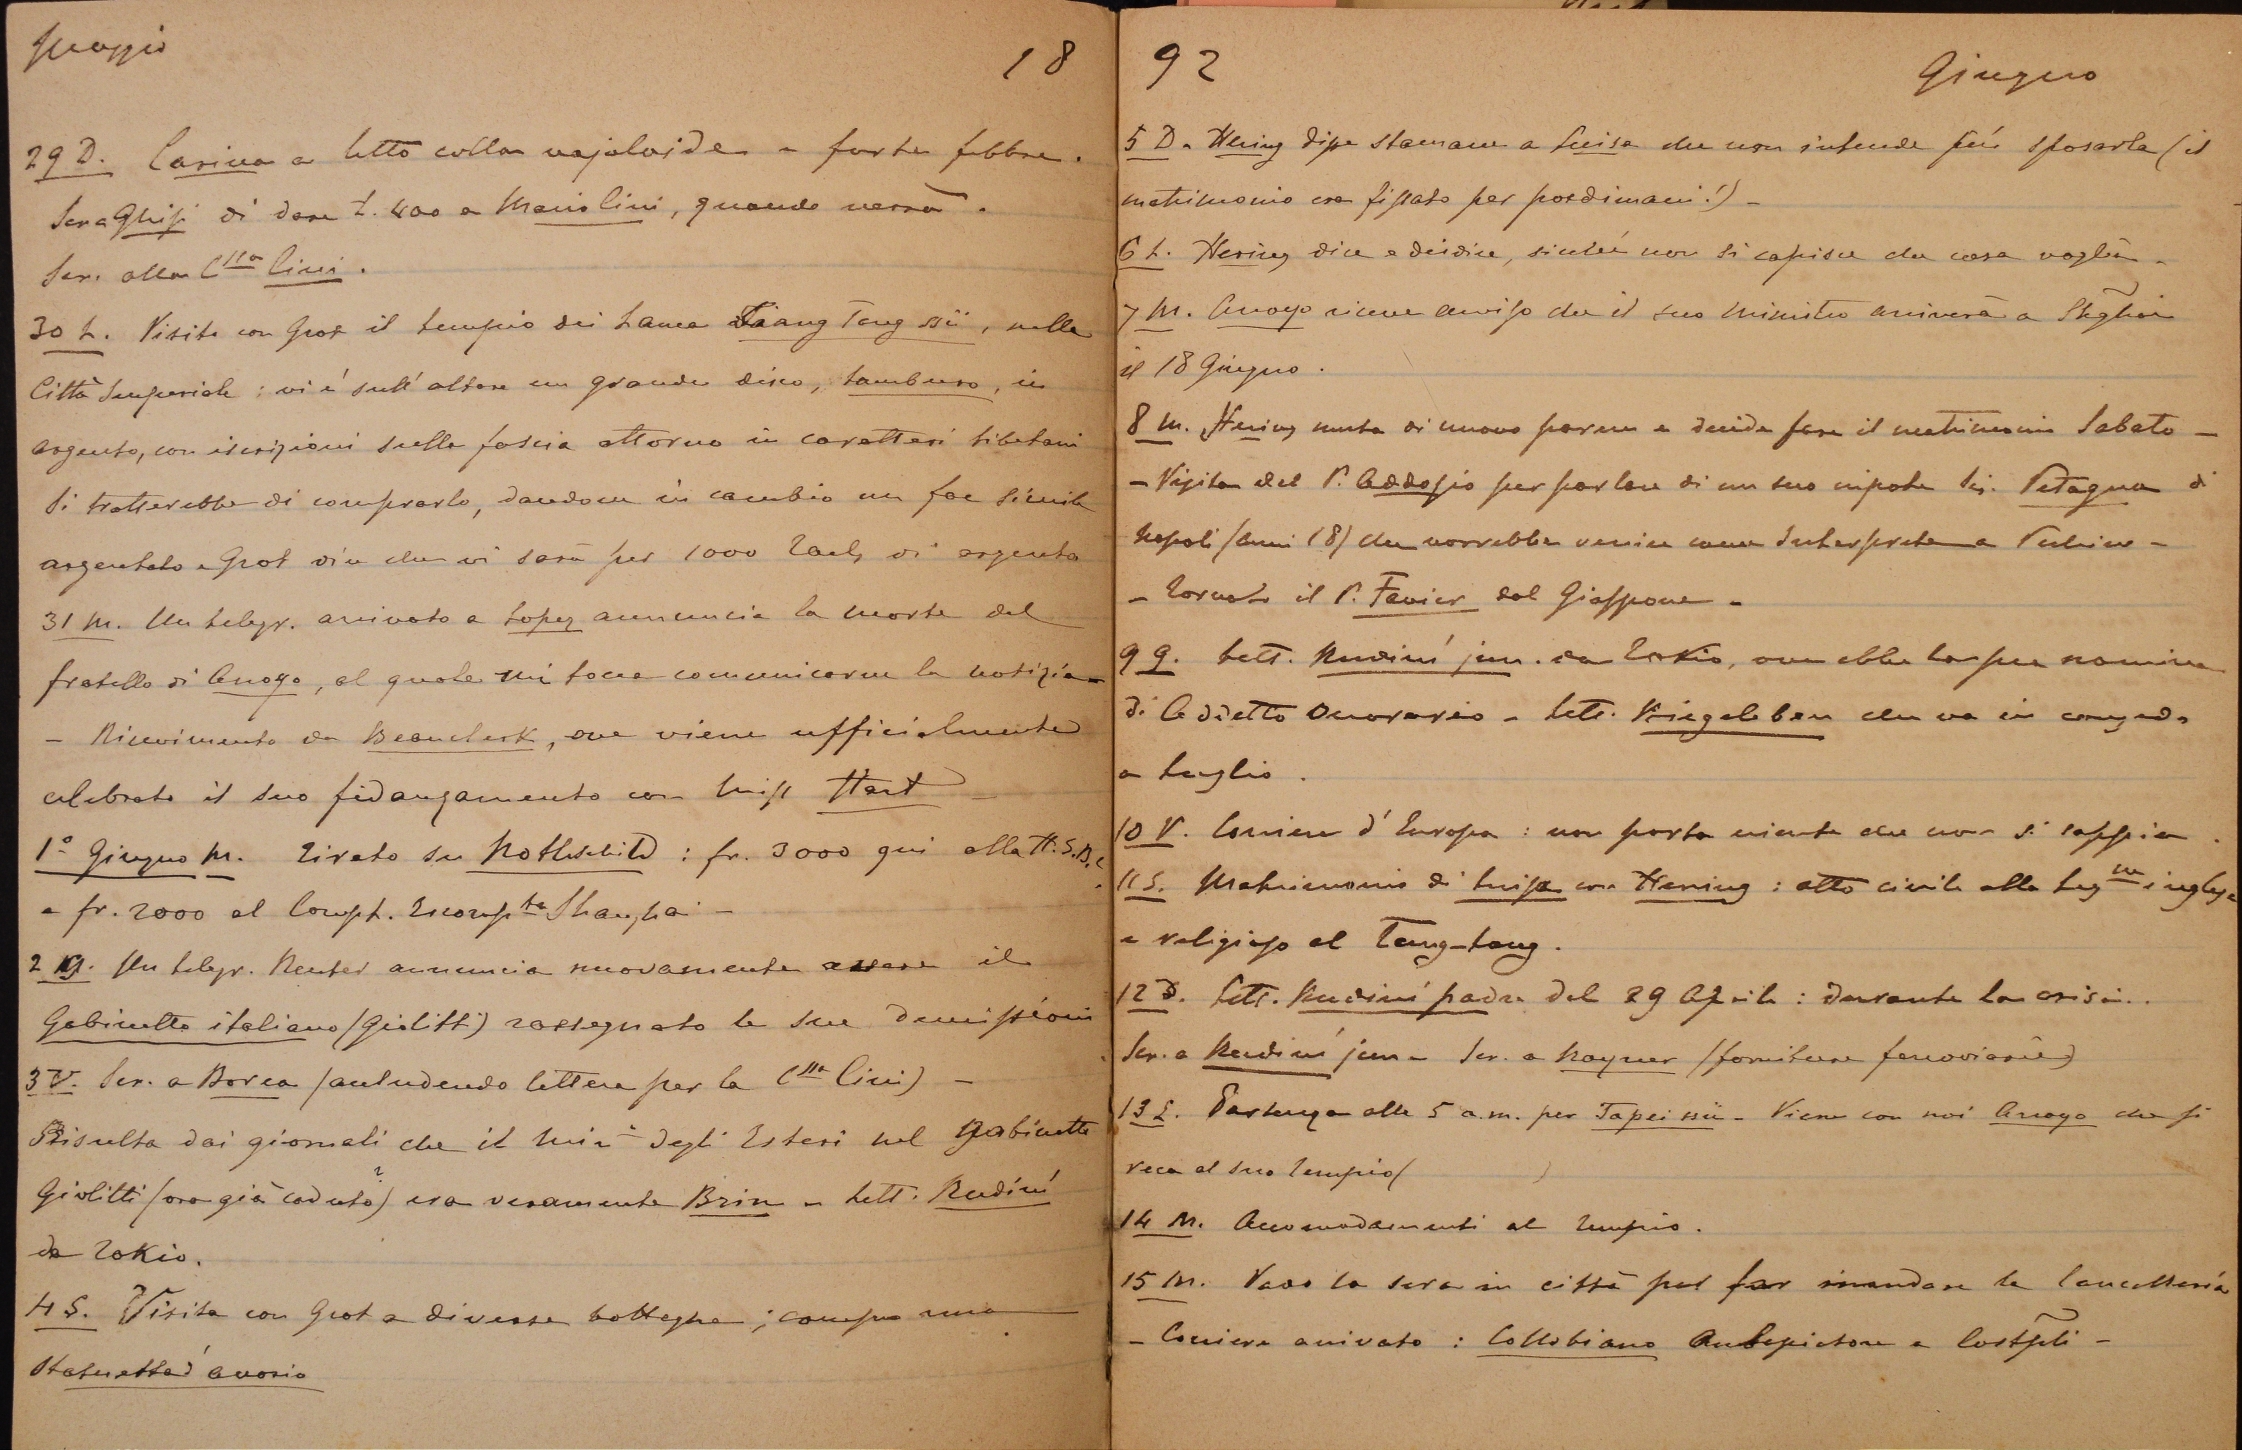 Maggio
18
29 D. Carina a letto colla vajoloide e forte febbre.
Scr. a Ghisi di dare L. 400 a Mariolini, quando verrà.
Scr. alla C.ssa Lini.
30 L. Visito con Grot il tempio dei Lama Tsiang Tang ssü, nella
Città Imperiale: vi è sull'altare un grande disco, tamburo, in
argento, con iscrizioni sulla fascia attorno in caratteri tibetani
Si tratterebbe di comprarlo, dandone in cambio un fac simile
argentato e Grot dice che vi sarà per 1000 Taels di argento
31 M. Un telegr. arrivato a Lopez annuncia la morte del
fratello di Arroyo, al quale mi tocca comunicarne la notizia –
– Ricevimento da Beauclerk, ove viene ufficialmente
celebrato il suo fidanzamento con Miss Hart –
1° Giugno M. Tirato su Rothschild: fr. 3000 qui alla H.S.B.C.
e fr. 2000 al Compt. Escompte Shanghai –
2 G. Un telegr. Reuter annuncia nuovamente avere il
Gabinetto italiano (Giolitti) rassegnato le sue demissioni
3 V. Scr. a Borea (accludendo lettera per la C.ssa Lini) –
Risulta dai giornali che il Min° degli Esteri nel Gabinetto
Giolitti (ora già caduto?) era veramente Brin – Lett. Rudinì
da Tokio.
4 S. Visita con Grot a diverse botteghe; compro una
statuetta d'avorio
92
Giugno
5 D. Hering disse stamane a Luisa che non intende più sposarla (il
matrimonio era fissato per posdimani!) –
6 L. Hering dice e disdice, sicché non si capisce che cosa voglia –
7 M. Arroyo riceve avviso che il suo Ministro arriverà a Shghai
il 18 Giugno.
8 M. Hering muta di nuovo parere e decide fare il matrimonio Sabato –
– Visita del P. Addosio per parlare di un suo nipote Sig. Petagna di
Napoli (anni 18) che vorrebbe venire come Interprete a Pechino –
– Tornato il P. Favier dal Giappone –
9 G. Lett. Rudinì jun. da Tokio, ove ebbe la sua nomina
di Addetto Onorario – Lett. Kriegelsben che va in congedo
a Luglio.
10 V. Corriere d'Europa: non porta niente che non si sappia.
11 S. Matrimonio di Luisa con Hering: atto civile alla Leg.ne inglese
e religioso al Tung-tang.
12 D. Lett. Rudinì padre del 29 Aprile: durante la crisi..
Scr. a Rudinì jun – Scr. a Rayner (forniture ferroviarie)
13 L. Partenza alle 5 a.m. per Tapei ssü – Viene con noi Arroyo che si
reca al suo tempio ( )
14 M. Accomodamenti al tempio.
15 M. Vado la sera in città per far mandare la Cancelleria
– Corriere arrivato: Collobiano a Costpli –